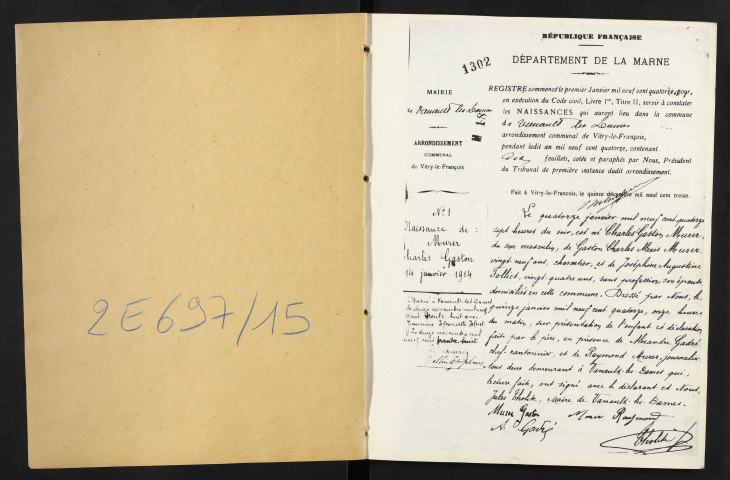 2E697/15
1302
RÉPUBLIQUE FRANÇAISE
DÉPARTEMENT DE LA MARNE
MAIRIE
de Vanault les Dames
ARRONDISSEMENT
COMMUNAL
de Vitry-le-François
REGISTRE commencé le premier Janvier mil neuf cent quatorze, pour,
en exécution du Code civil, Livre Ier, Titre II, servir à constater
les NAISSANCES qui auront lieu dans la commune
de Vanault les Dames
arrondissement communal de Vitry-le-François,
pendant ledit an mil neuf cent quatorze, contenant
Dix feuillets, cotés et paraphés par Nous, Président
du Tribunal de première instance dudit arrondissement.
Fait à Vitry-le-François, le quinze décembre mil neuf cent treize.
No 1
Naissance de :
Murer
Charles Gaston
14 janvier 1914
Marié à Vanault-les-Dames
le douze novembre mil neuf
cent trente huit avec
Henriette
novembre mil
neuf cent trente huit
Le quatorze janvier mil neuf cent quatorze
sept heures du soir, est né Charles Gaston Murer,
du sexe masculin, de Gaston Charles Alexis Murer,
vingt-neuf ans, charcutier, et de Joséphine Augustine
Folliet, vingt quatre ans, sans profession, son épouse
domiciliés en cette commune. Dressé par Nous, le
quinze janvier mil neuf cent quatorze, onze heures
du matin, sur présentation de l'enfant et déclaration
faite par le père, en présence de Alexandre Gadré
chef-cantonnier, et de Raymond Murer, journalier
tous deux demeurant à Vanault-les-Dames qui,
lecture faite, ont signé avec le déclarant et Nous,
Jules Tholik, Maire de Vanault-les-Dames.
Murer Gaston Murer Raymond
A. Gadré Tholik